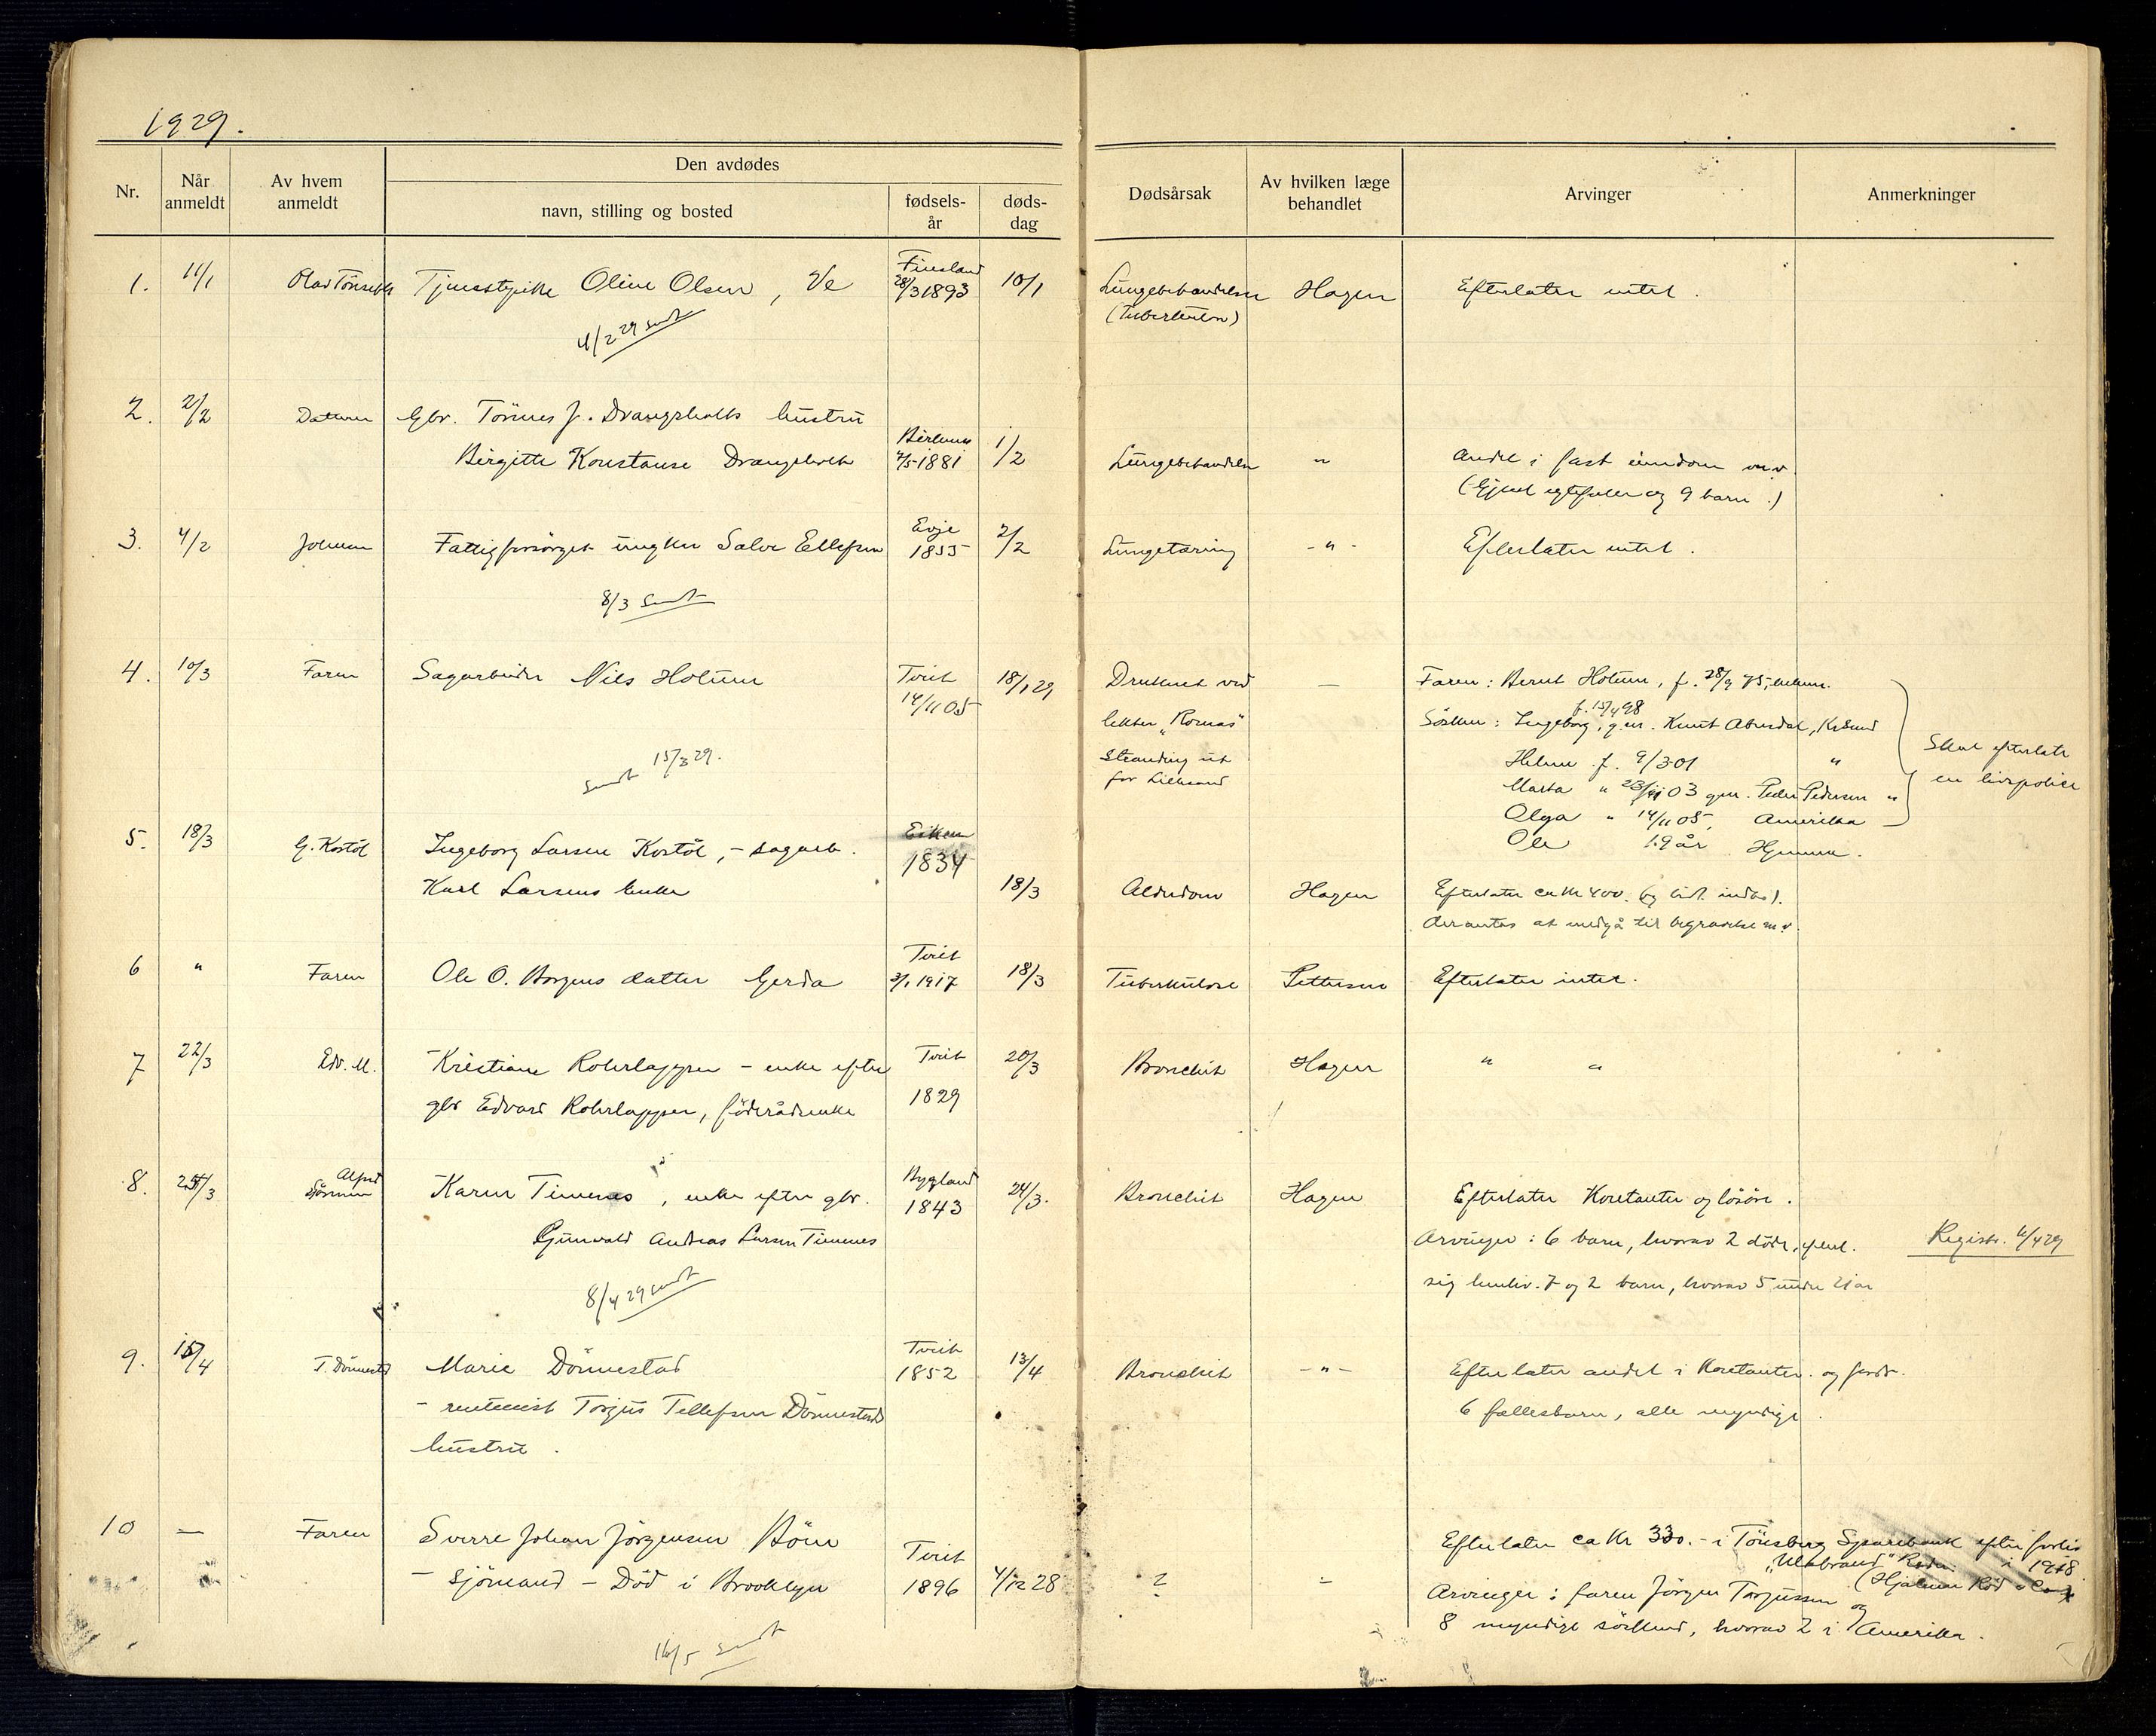 1929.
Nr.
Når anmeldt
Av hvem anmeldt
Den avdødes
navn, stilling og bosted
fødsels-år
døds-dag
Dødsårsak
Av hvilken læge behandlet
Arvinger
Anmerkninger
1. 11/1 Olav Tjenestepike Oline Olsen, Ve Finsland 28/3 1893 10/1 Hagen Efterlater intet.
(Tuberkulon)
4/2 29 sendt
2. 2/2 Datteren Gbr. Tönnes J. Drangsholts hustru
Birgitte Konstanse Drangsholt Birkenes 4/5 1881 1/2 " Andel i fast eiendom m.v.
9 barn.)
3. 4/2 Johnsen Fattigforsørget ungkar Salve Ellefsen Evje 1855 2/2 Lungetæring -"- Efterlater intet.
8/3 sendt
4. 10/3 Faren Sagarbeider Nils Holum Tveit 14/11 05 18/1 29 Druknet ved — Faren: Bernt Holum, f. 28/9 75,
lekter „Kornas" f. 15/4 98
Søsken: Ingeborg, g.m. Knut Abusdal, Kr.sand
Stranding ut Helene f. 9/3 01 "
for Lillesand Marta " 03 gm. Peder Pedersen "
Olga " 14/11 05, Amerika
Ole 19 år Hjemme.
Skal efterlate
en livspolise
sendt 15/3 29.
5. 18/3 G. Kostöl Ingeborg Larsen Kostöl, - sagarb. Eiken 1834
Karl Larsens enke 18/3 Alderdom Hagen Efterlater ca kr 400.
at medgå til begravelse m.v.
6 " Faren Ole O. Borgens datter Gerda Tveit 3/1 1917 18/3 Tuberkulose Pettersen Efterlater intet.
7 22/3 Edv. M. Kristiane Roherlappen - enke efter Tveit 20/3 Bronchit Hagen " "
gbr Edvard Roherlappen, föderådsenke 1829
8. 25/3 Alfred Karen Timenes, enke efter gbr. Bygland 1843 24/3. Bronchit Hagen Efterlater Kontanter og lösöre.
Gunvald Andreas Larsen Timenes Arvinger: 6 barn, hvorav 2 döde, efterl.
Registr. 4/4 29
sig henhv. 7 og 2 barn, hvorav 5 under 21 år
8/4 29 sendt
9. 15/4 T. Dönnestad Marie Dönnestad Tveit 1852 13/4 Bronchit -"- Efterlater andel i Kontanter og fordr.
- rentenist Torjus Tellefsen Dönnestads 6 fællesbarn, alle myndige.
hustru.
10 — Faren Sverre Johan Jörgensen Böen Tveit 1896 4/12 28 ? - Efterlater ca Kr 330.- i Tönsberg Sparebank efter forlis
- sjömand - Död i Brooklyn „Ulabrand" i 1918
(Hjalmar Röd
Arvinger: faren Jörgen Torjussen og
8 myndige søskend, hvorav 2 i Amerika.
16/5 sendt